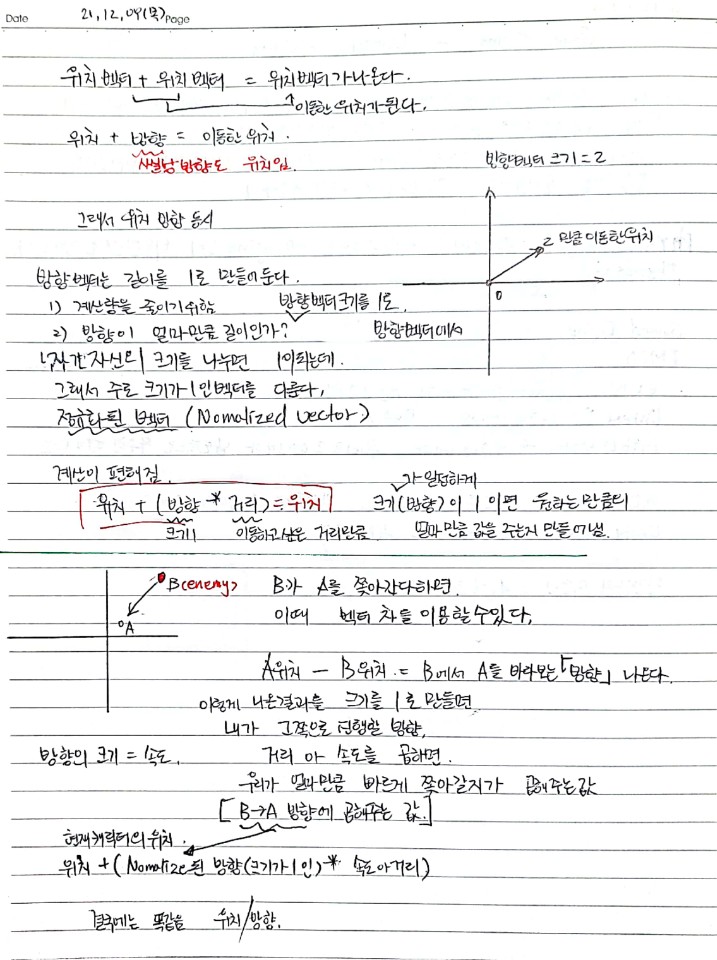 Date 21,12,09(목) Page
위치벡터 + 위치벡터 = 위치벡터가 나온다.
이동한 위치가 된다.
위치 + 방향 = 이동한 위치.
사실상 방향도 위치임.
방향벡터 크기 = 2
그래서 위치 방향 동시
2 만큼 이동한 위치
0
방향벡터는 길이를 1로 만들어둔다.
1) 계산량을 줄이기위함 방향벡터크기를 1로.
2) 방향이 얼마만큼 길이인가? 방향벡터에서
자기자신의 크기를 나누면 1이되는데.
그래서 주로 크기가 1인벡터를 다룬다,
정규화된 벡터 (Nomalized vector)
계산이 편해짐.
위치 + (방향 * 거리) = 위치
크기1 이동하고싶은 거리만큼
가 일정하게
크기(방향)이 1 이면 원하는만큼의
얼마만큼 값을 주는지 만들어낼
B(enemy)
A
B가 A를 쫓아간다하면.
이때 벡터 차를 이용할수있다,
A위치 - B위치 = B에서 A를 바라보는「방향」 나온다.
이렇게 나온결과를 크기를 1로 만들면
내가 그쪽으로 진행할 방향,
방향의 크기 = 속도. 거리 아 속도를 곱하면.
우리가 얼마만큼 빠르게 쫓아갈지가 곱해주는값
[B→A 방향에 곱해주는 값.]
현재캐릭터의 위치.
위치 + (Nomalize된 방향(크기가 1인) * 속도아거리)
결국에는 똑같음 위치/방향.